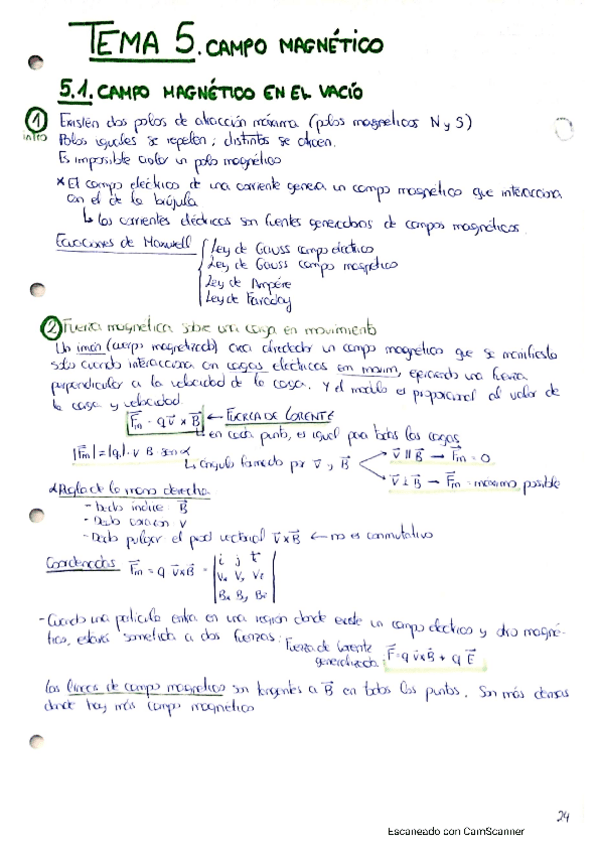 TEMA 5. CAMPO MAGNÉTICO
5.1. CAMPO MAGNÉTICO EN EL VACÍO
① Existen dos polos de atracción máxima (polos magnéticos N y S)
intro Polos iguales se repelen; distintos se atraen.
Es imposible aislar un polo magnético
* El campo eléctrico de una corriente genera un campo magnético que interacciona
con el de la brújula
↳ las corrientes eléctricas son fuentes generadoras de campos magnéticos.
Ecuaciones de Maxwell { Ley de Gauss campo eléctrico
Ley de Gauss campo magnético
Ley de Ampère
Ley de Faraday
② Fuerza magnética sobre una carga en movimiento
Un imán (cuerpo magnetizado) crea alrededor un campo magnético que se manifiesta
solo cuando interacciona con cargas eléctricas en movim, ejerciendo una fuerza
perpendicular a la velocidad de la carga. Y el modulo es proporcional al valor de
la carga y velocidad.
F⃗m = q v⃗ x B⃗ ← FUERZA DE LORENTZ
↳ en cada punto, es igual para todas las cargas
|F⃗m| = |q| · v · B · sen α
↳ ángulo formado por v⃗ y B⃗
v⃗ ∥ B⃗ → F⃗m = 0
v⃗ ⊥ B⃗ → F⃗m = máxima posible
* Regla de la mano derecha
- Dedo índice: B⃗
- Dedo corazón: v
- Dedo pulgar el prod vectorial v⃗ x B⃗ ← no es conmutativo
Coordenadas F⃗m = q v⃗ x B⃗ = | i j k |
| Vx Vy Vz |
| Bx By Bz |
- Cuando una partícula entra en una región donde existe un campo eléctrico y otro magné-
tico, estará sometida a dos fuerzas: Fuerza de Lorentz
generalizada: F⃗ = q v⃗ x B⃗ + q E⃗
Las líneas de campo magnético son tangentes a B⃗ en todos los puntos. Son más densas
donde hay más campo magnético
24
Escaneado con CamScanner